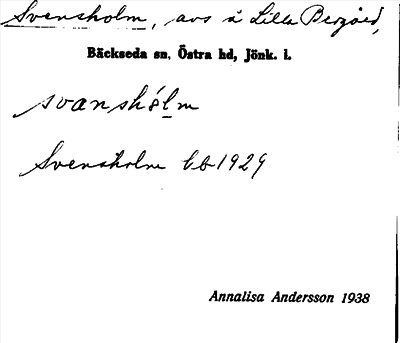 Svensholm, avs å Lilla Bergård,
Bäckseda sn, Östra hd, Jönk. l.
svanshólm
Svensholm Eb 1929
Annalisa Andersson 1938